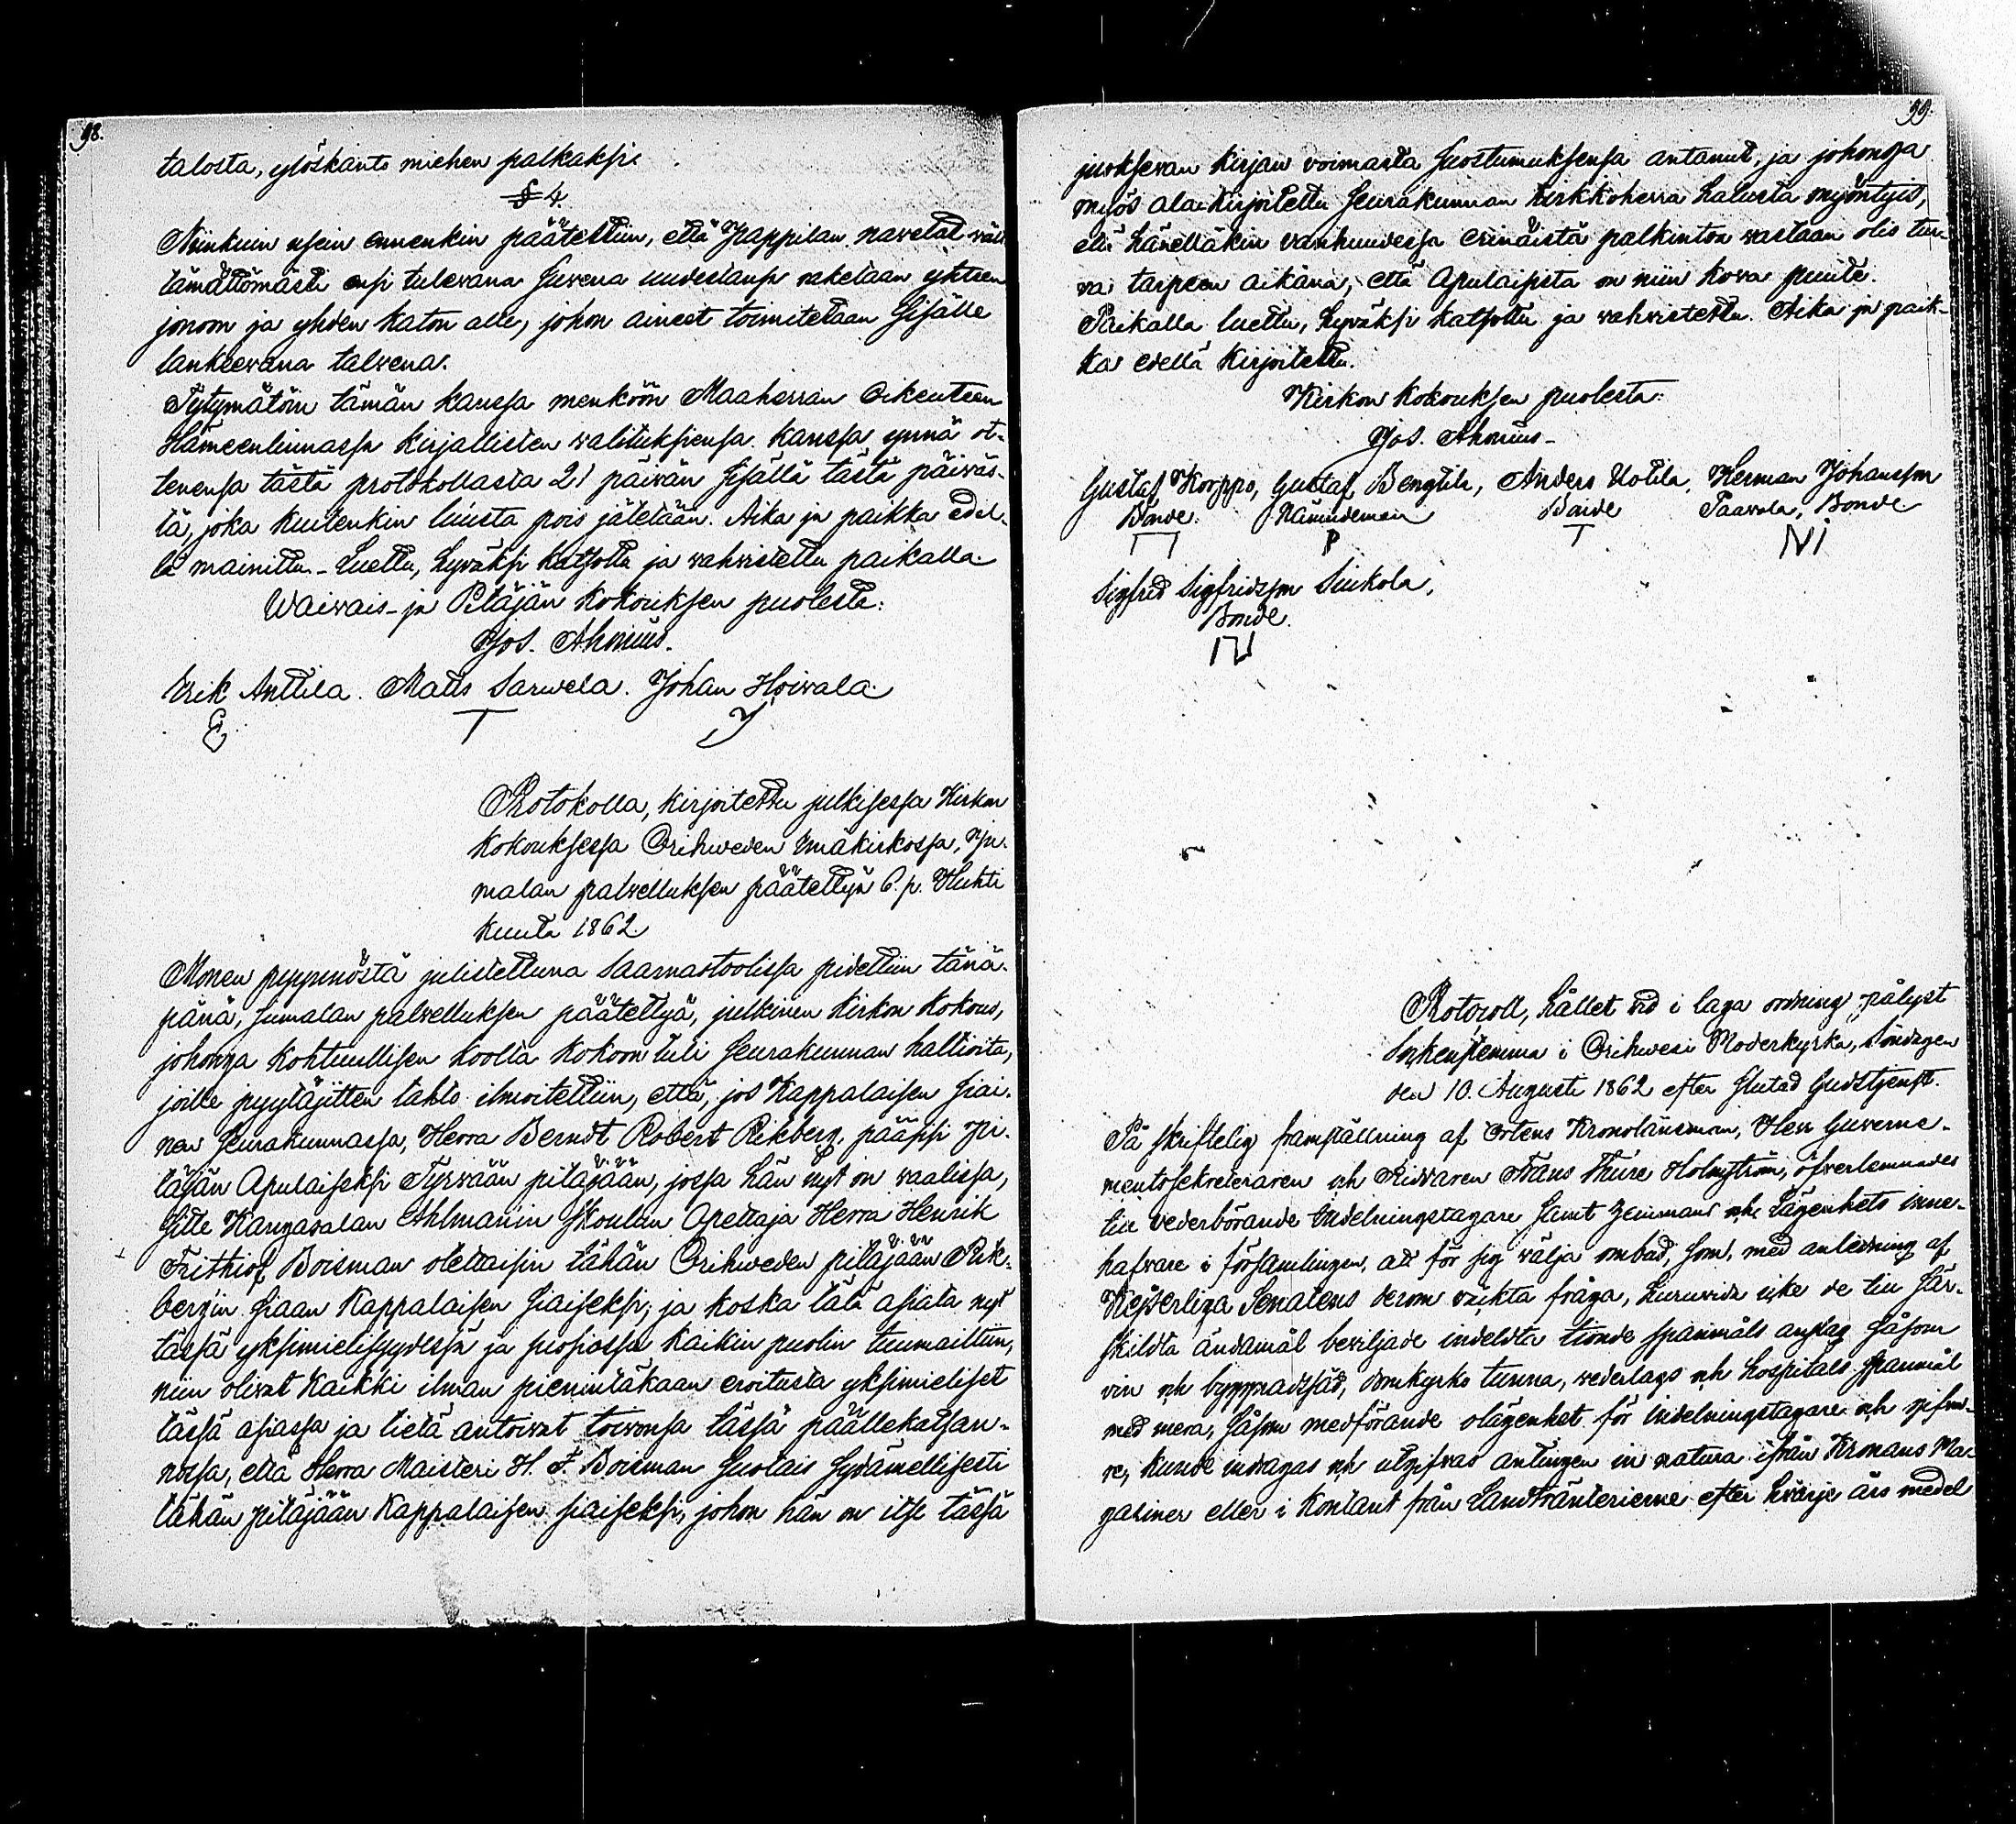 98.
talosta, ylöskanto miehen palkaksi.
§ 4.
Niinkuin usein ennenkin päätettiin, että Pappilan navetat wält-
tämättömästi ensi tulevana suvena uudestansa raketaan yhteen
jonoon ja yhden katon alle, johon aineet toimitetaan sisälle
lankeevana talvena.
Tytymätöin tämän kanssa menköön Maaherran Oikeuteen
Hämeenlinnassa kirjallisten valituksensa kanssa ynnä ot-
tenensa tästä protokollasta 21 päivän sisällä tästä päiväs-
tä, joka kuitenkin luusta pois jätetään. Aika ja paikka edel-
lä mainittu. Luettu, hyväksi katsottu ja vahvistettu paikalla
Waivais- ja Pitäjän kokouksen puolesta:
Jos. Ahonius.
Erik Anttila. Matts Sarvela. Johan Hoivala.
E T J
Protokolla, kirjoitettu julkisessa Kirkon
kokouksessa Orihveden Emäkirkossa, Ju-
malan palvelluksen päätettyä 6. p. Huhti
kuuta 1862.
Monen pyynnöstä julistettuna Saarnastoolissa pidettiin tänä-
pänä, Jumalan palvelluksen päätettyä, julkinen Kirkon kokous,
johonga kohtuullisen koolta kokoon tuli seurakunnan haltioita,
joille pyytäjitten tahto ilmoitettiin, että, jos Kappalaisen siai-
nen seurakunnassa, Herra Berndt Robert Rikberg, pääsisi Pi-
täjän Apulaiseksi Tyrvään pitäjään, jossa hän nyt on vaalissa,
sitte Kangasalan Ahlmanin Skoulun Opettaja Herra Henrik
Frithiof Boisman otettaisiin tähän Orihveden pitäjään Rik-
bergin siaan Kappalaisen siaiseksi; ja koska tätä asiata nyt
tässä yksimielisyydessä ja suosiossa kaikin puolin tuumaittiin,
niin olivat kaikki ilman pienintäkään eroitusta yksimieliset
tässä asiassa ja tietä antoivat toivonsa tässä päällekatsan-
nossa, että Herra Maisteri H. F. Boisman suotais sydämellisesti
tähän pitäjään Kappalaisen siaiseksi, johon hän on itse tässä
99.
juoksevan kirjan voimasta suostumuksensa antanut, ja johonga
myös alaikirjoitettu seurakunnan kirkkoherra halusta myöntyis,
että hänelläkin vanhuudessa erinäistä palkintoa vastaan olis tur-
va tarpeen aikana, että Apulaisista on niin kova puute.
Paikalla luettu, hyväksi katsottu ja vahvistettu. Aika ja paik-
ka edellä kirjoitettu.
Kirkon kokouksen puolesta:
Jos. Ahonius.
Gustaf Korppo, Gustaf Bengtila, Anders Uotila, Herman Johansson
Bonde. Nämndeman Bonde Paavola, Bonde
P T
Sigfrid Sigfridsson Siukola,
Bonde.
Protocoll, hållet vid i laga ordning pålyst
Sockenstemma i Orihvesi Moderkyrka, Söndagen
den 10. Augusti 1862 efter slutad Gudstjenst.
På skriftelig framställning af Ortens Kronolänsman, Herr Guverne-
mentssekreteraren och Riddaren Frans Thure Holmström, öfverlemnades
till vederbörande Indelningstagare samt hemmans och Lägenhets inne-
hafvare i församlingen, att för sig välja ombud, som, med anledning af
Kejserliga Senatens derom väckta fråga, huruvida icke de till sär-
skildta ändamål beviljade indeldta tionde spannmåls anslag såsom
vin och byggnadssäd, domkyrko tunna, vederlags och hospitals spannmål
med mera, såsom medförande olägenhet för indelningstagare och gifva-
re, kunde indragas och utgifvas antingen in natura ifrån Kronans Ma-
gasiner eller i Kontant från Landtränterierne efter hvarje års medel